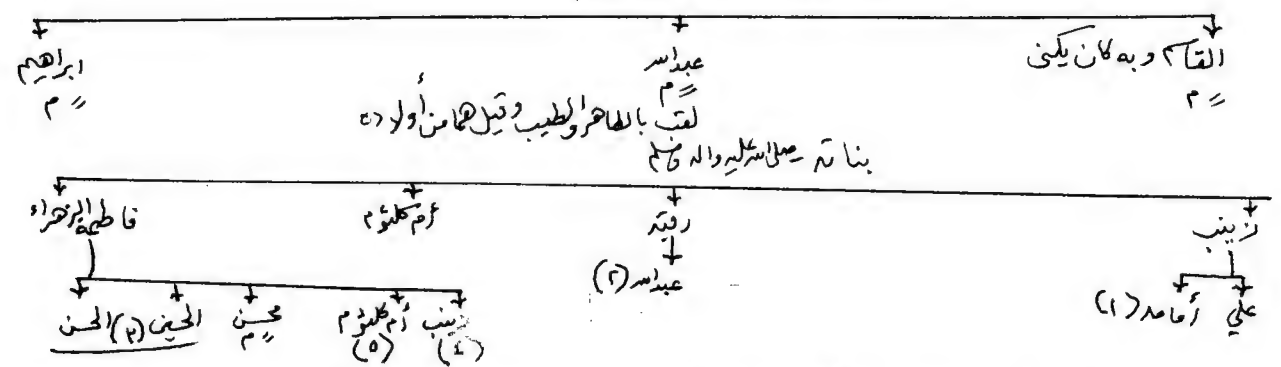 القاسم وبه كان يكنى عبدالله ابراهيم
م م م
لقب بالطاهر والطيب وقيل هما من أولاده
بناته صلى الله عليه وآله وسلم
زينب رقية أم كلثوم فاطمة الزهراء
علي أمامه (١) عبدالله (٢) زينب (٤) أم كلثوم (٥) محسن م الحسين (٣) الحسن